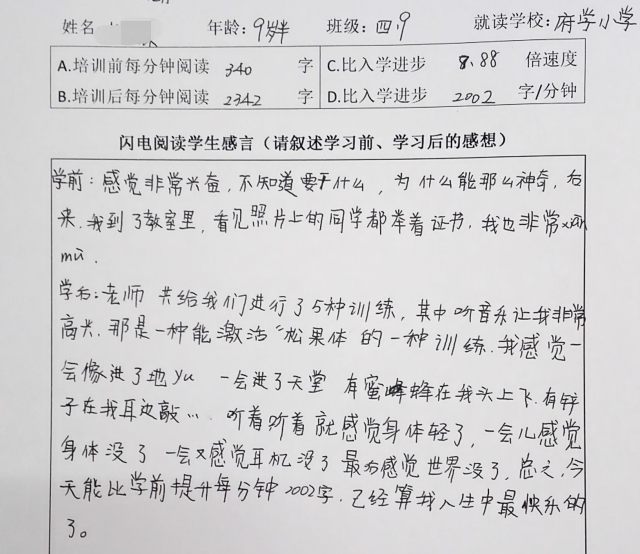 姓名 年龄:9岁半 班级:四9 就读学校:府学小学
A.培训前每分钟阅读 340 字 C.比入学进步 8.88 倍速度
B.培训后每分钟阅读 2342 字 D.比入学进步 2002 字/分钟
闪电阅读学生感言(请叙述学习前、学习后的感想)
学前:感觉非常兴奋,不知道要干什么,为什么能那么神奇,后
来,我到了教室里,看见照片上的同学都举着证书,我也非常xiàn
mù.
学后:老师 共给我们进行了5种训练,其中听音乐让我非常
高兴.那是一种能激活“松果体 的一种训练.我感觉一
会像进了地yu 一会进了天堂 有蜜蜂在我头上飞.有锌
子在我耳边敲… 听着听着就感觉身体轻了,一会儿感觉
身体没了 一会又感觉耳机没了 最后感觉世界没了,总之,今
天能比学前提升每分钟2002字.已经算我人生中最快乐的
了。